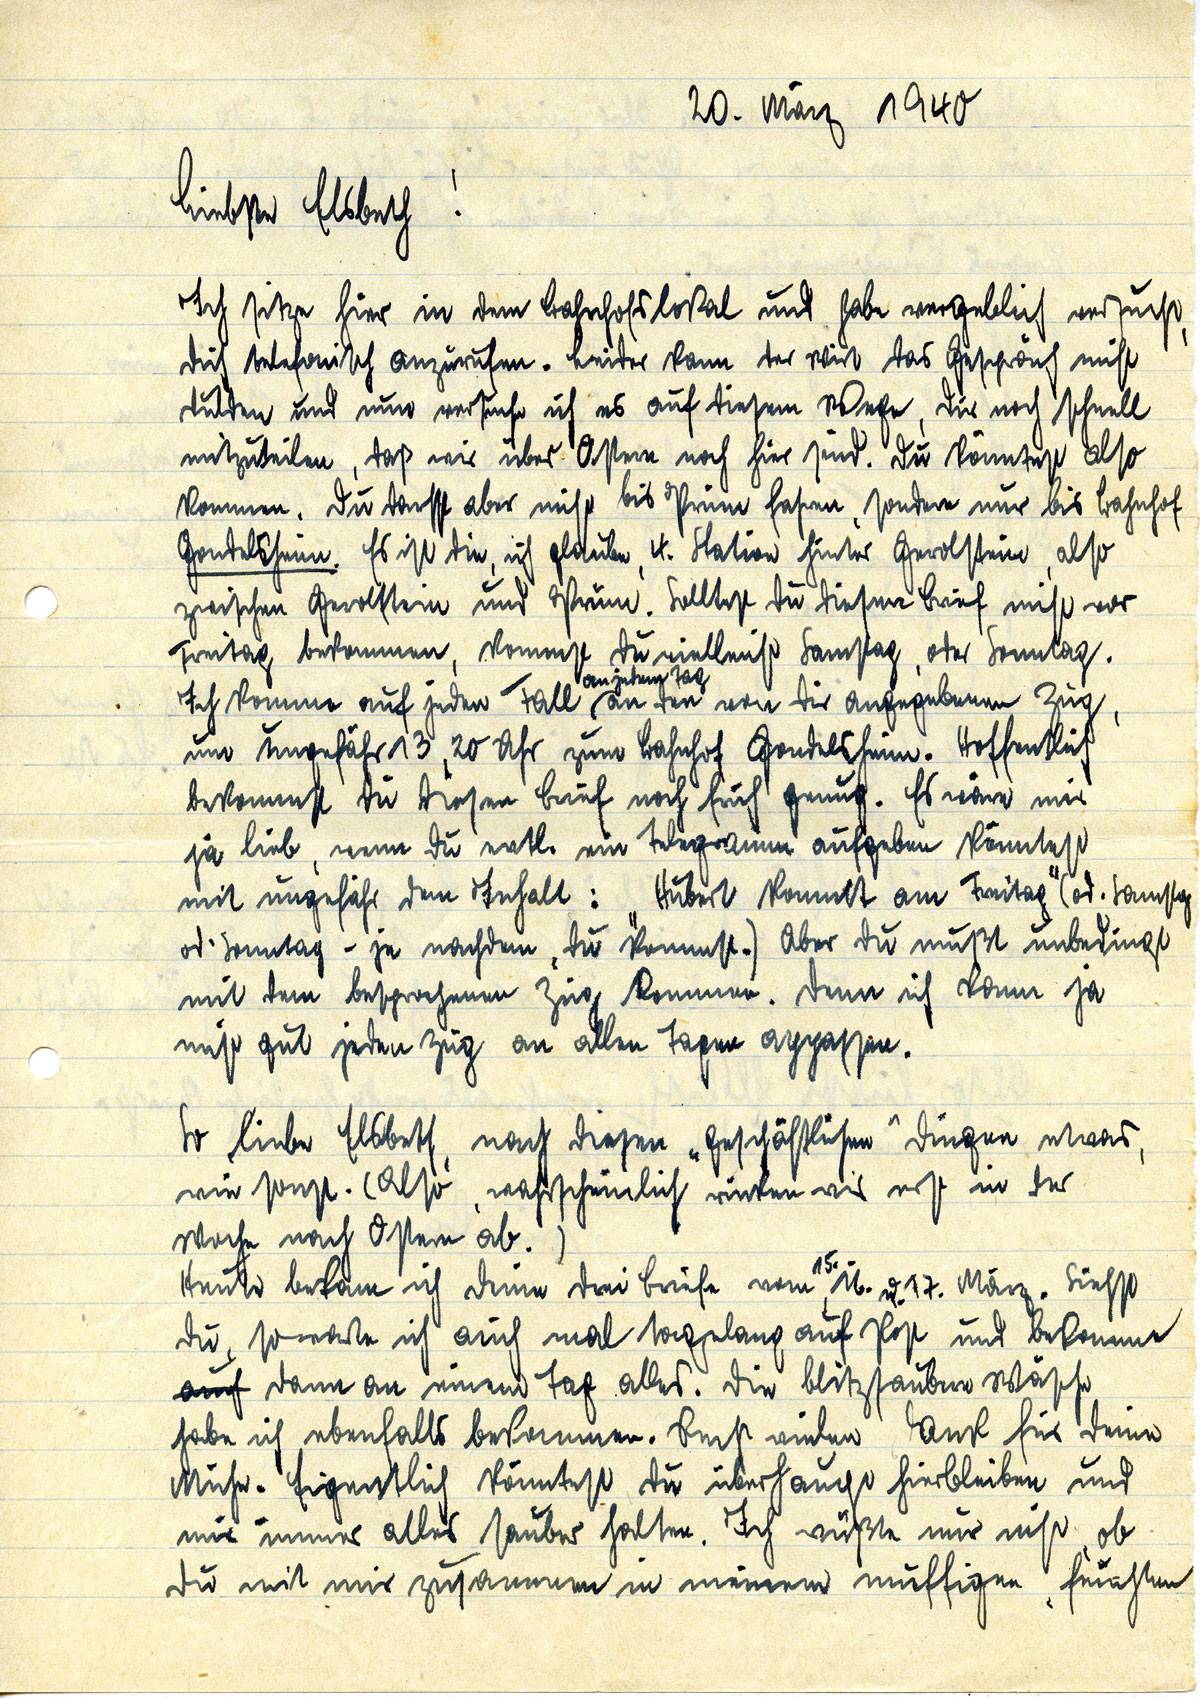 20. März 1940
Liebste Elsbeth!
Ich sitze hier in dem Bahnhofslokal und habe vergeblich versucht,
dich telefonisch anzurufen. Leider kann der Wirt das Gespräch nicht
dulden und nun versuche ich es auf diesem Wege, dir noch schnell
mitzuteilen, daß wir über Ostern noch hier sind. Du könntest also
kommen. Du darfst aber nicht bis Prüm fahren, sondern nur bis Bahnhof
Gondelsheim. Es ist die, ich glaube, 4. Station hinter Gerolstein, also
zwischen Gerolstein und Prüm. Solltest du diesen Brief nicht vor
Freitag bekommen, kommst du vielleicht Samstag, oder Sonntag.
Ich komme auf jeden Fall an jedem Tag an den von dir angegebenen Zug,
um ungefähr 13,20 Uhr zum Bahnhof Gondelsheim. Hoffentlich
bekommst du diesen Brief noch früh genug. Es wäre mir
ja lieb, wenn du evtl. ein Telegramm aufgeben könntest
mit ungefähr dem Inhalt: Hubert kommt am Freitag" (od. Samstag
od. Sonntag - je nachdem, du kommst.) Aber du mußt unbedingt
mit dem besprochenen Zug kommen. Denn ich kann ja
nicht gut jeden Zug an allen Tagen appassen.
So liebe Elsbeth, nach diesen „geschäftlichen" Dingen etwas,
wie sonst. (Also, wahrscheinlich rücken wir erst in der
Woche nach Ostern ab.)
Heute bekam ich deine drei Briefe vom 15., 16. u. 17. März. Siehst
du, so warte ich auch mal tagelang auf Post und bekomme
auch dann an einem Tag alles. Die blitzsaubere Wäsche
habe ich ebenfalls bekommen. Recht vielen Dank für deine
Mühe. Eigentlich könntest du überhaupt hierbleiben und
mir immer alles sauber halten. Ich wüßte nur nicht, ob
du mit mir zusammen in meinem muffigen, feuchten